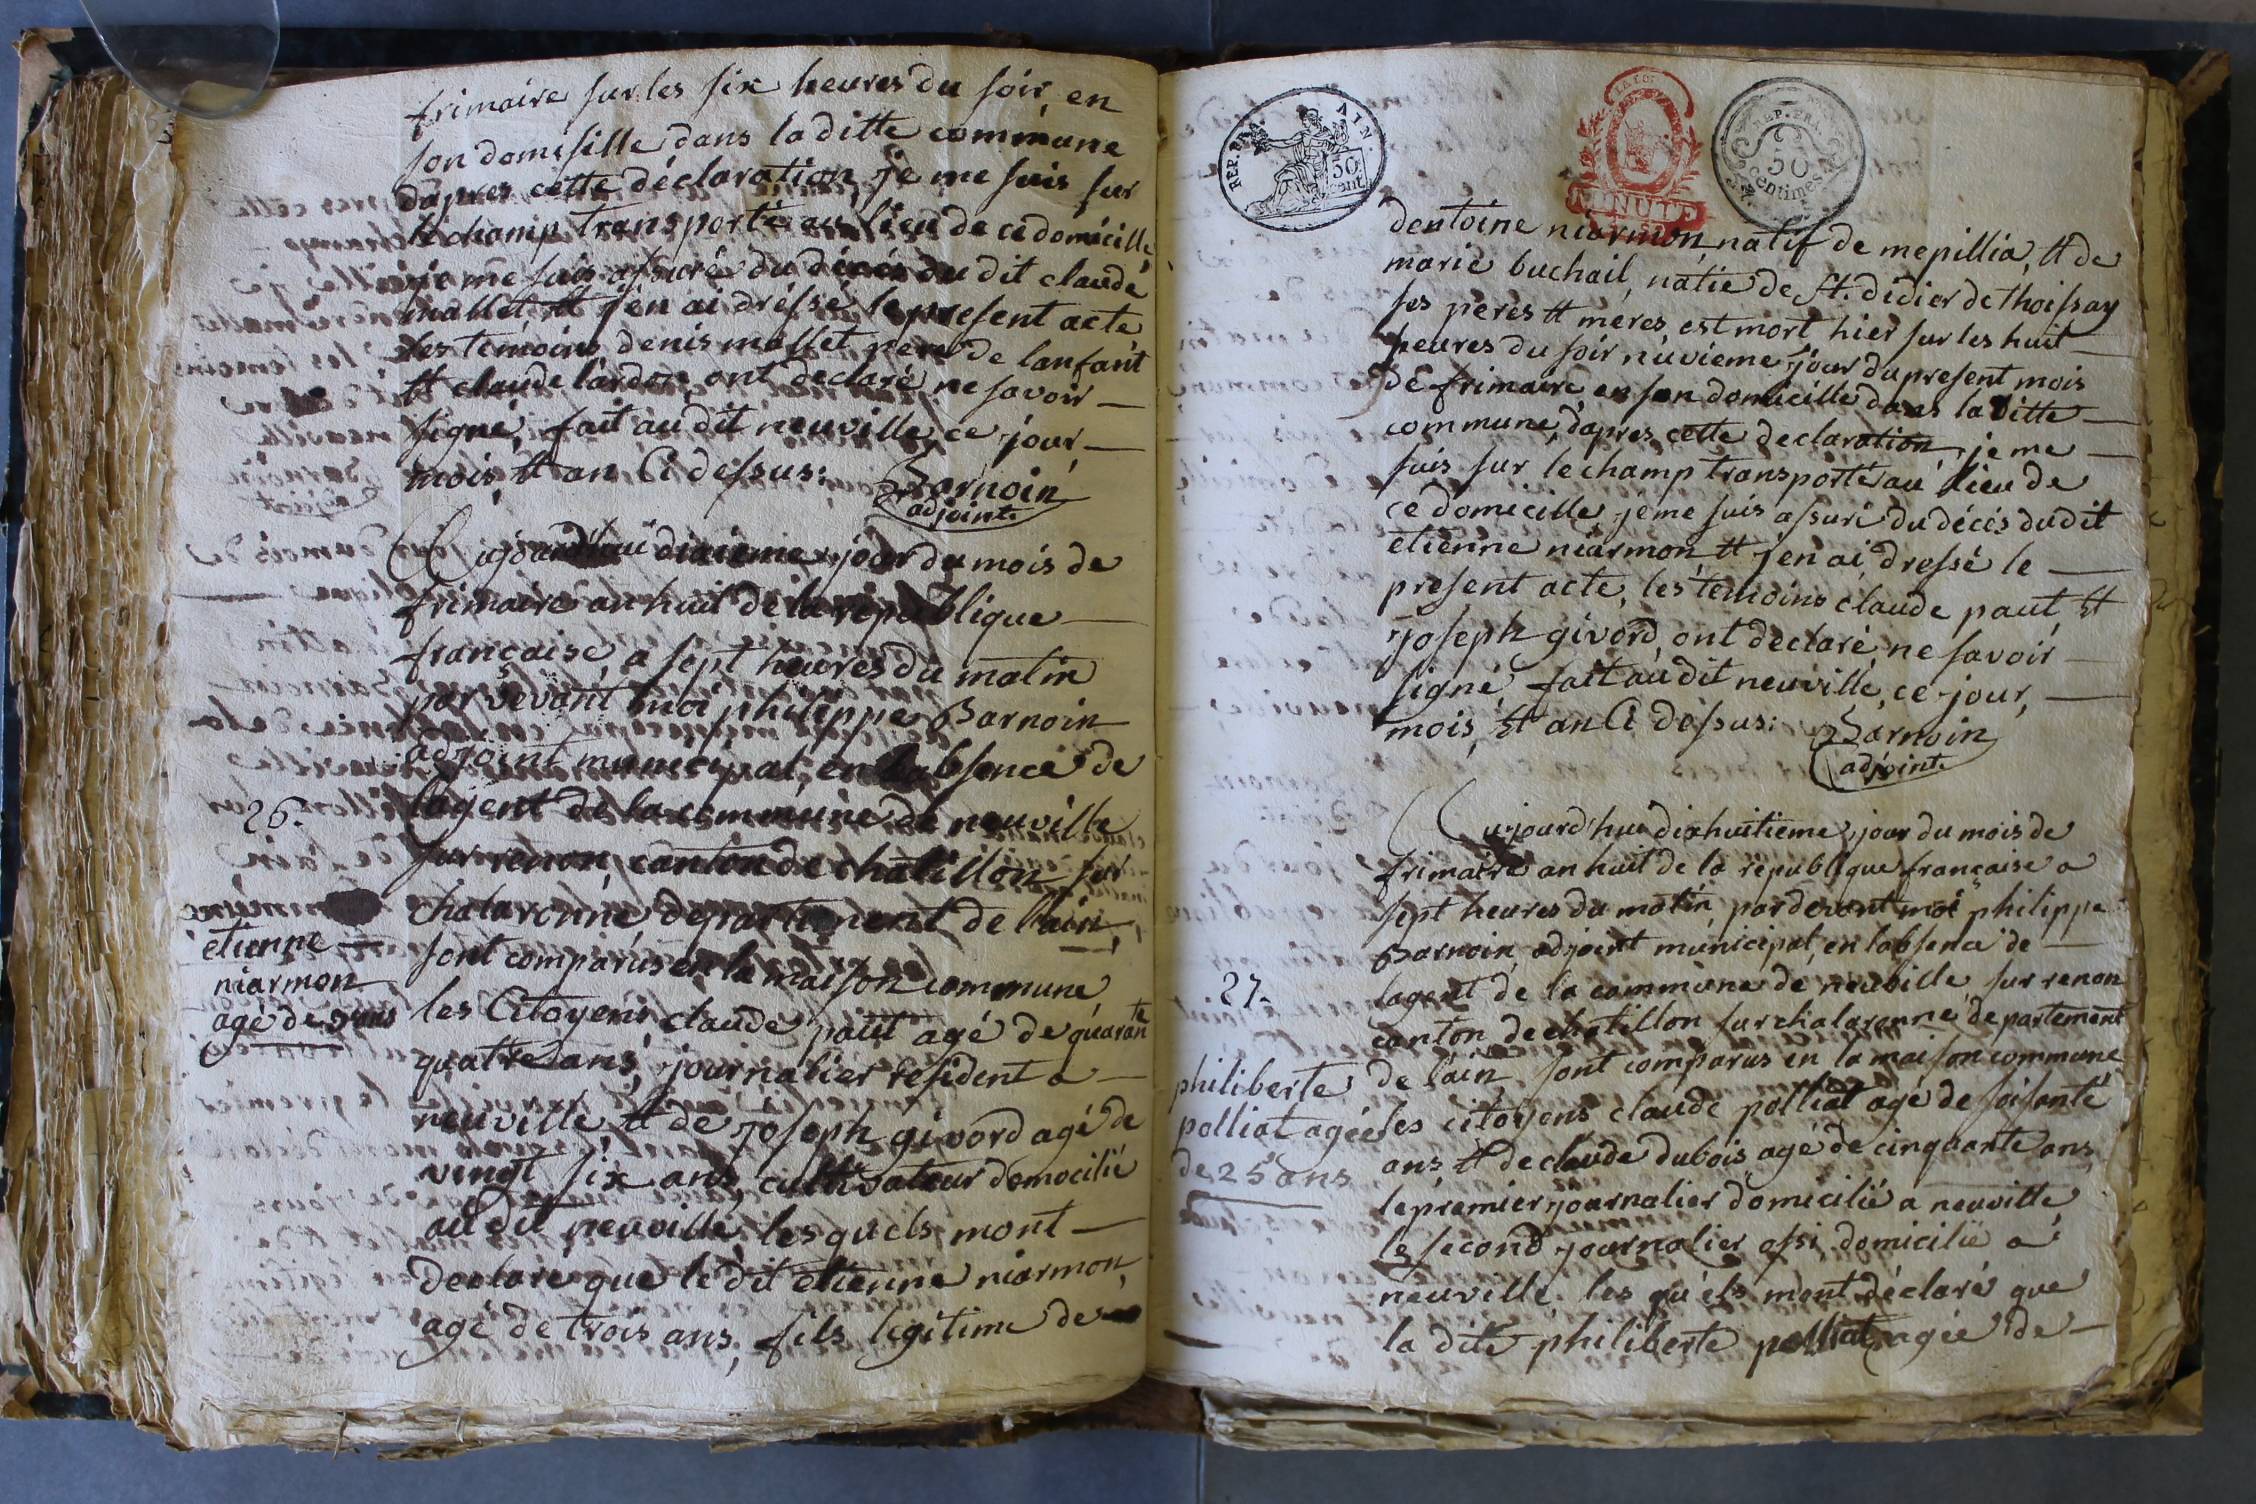 frimaire sur les six heures du soir, en
son domisille dans la ditte commune
dapres cette déclaration, je me suis sur
le champ transporté au lieu de ce domicille
je me suis assuré du décés du dit claude
mallet et j'en ai dréssé le present acte
les temoins denis mallet pere de lanfant
et claude ont declaré ne savoir
signé, fait au dit neuville, ce jour
mois, et an Ci dessus:
Barnoin
adjoint
dixieme jour du mois de
frimaire an huit de la republique
française, a sept heures du matin
par devant moi philippe Barnoin
adjoint municipal, en labsence de
26.
lagent de la commune de neuville
sur renon, canton de chatillon sur
chalaronne, departement de lain,
sont comparus en la maison commune
etienne
niarmon
agé de 3 ans
les Citoyens claude paut agé de quarante
quatre ans, journalier resident a
neuville et de joseph givord agé de
vingt six ans, cultivateur domocilié
au dit neuville, les quels mont
declaré que le dit etienne niarmon,
agé de trois ans, fils legitime de
REP. FRA.
AIN.
50
cent.
LA LOI
MINUTE
REP. FRA.
50
centimes
dentoine niarmon natif de mepillia, et de
marie buchail, natie de st. didier de thoissay
ses peres et meres est mort hier sur les huit
heures du soir nuvieme jour du present mois
de frimaire, en son domicille dans la ditte
commune, dapres cette declaration, je me
suis sur le champ transporté au lieu de
ce domicille, jeme suis assuré du décés dudit
etienne niarmon, et j'en ai dressé le
present acte, les temoins claude paut, et
joseph givord, ont declaré ne savoir
signé, fait au dit neuville, ce jour,
mois, et an Ci dessus:
Barnoin
adjoint
Aujourd'hui dixhuitieme jour du mois de
frimaire an huit de la republique française a
sept heures du matin, par devant moi philippe
Barnoin, adjoint municipal, en labsence de
27.
lagent de la commune de neuville sur renon
canton de chatillon sur chalaronne, departement
de lain, sont comparus en la maison commune
philiberte
polliat agée
de 25 ans
les citoyens claude polliat agé de soisante
ans et de claude dubois agé de cinquante ans
le premier journalier domicilié a neuville
le second journalier ossi domicilié a
neuville. les quéls mont déclaré que
la dite philiberte polliat, agée de